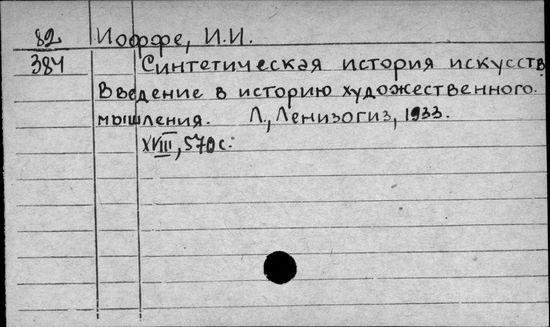 82 Иоффе, И.И.
384 Синтетическая история искусств
Введение в историю художественного
мышления. Л., Ленизогиз, 1933.
XVIII, 570 с.